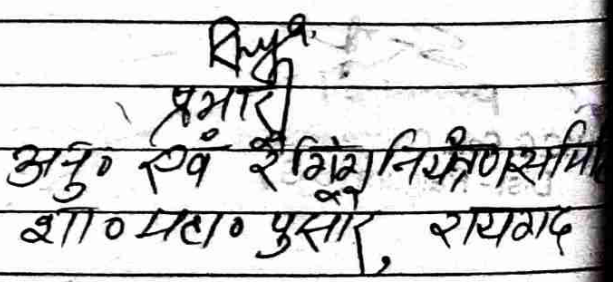 प्रभारी
अनु० एवं रैगिंग नियंत्रण समि
शा० महा० पुसौर, रायगढ